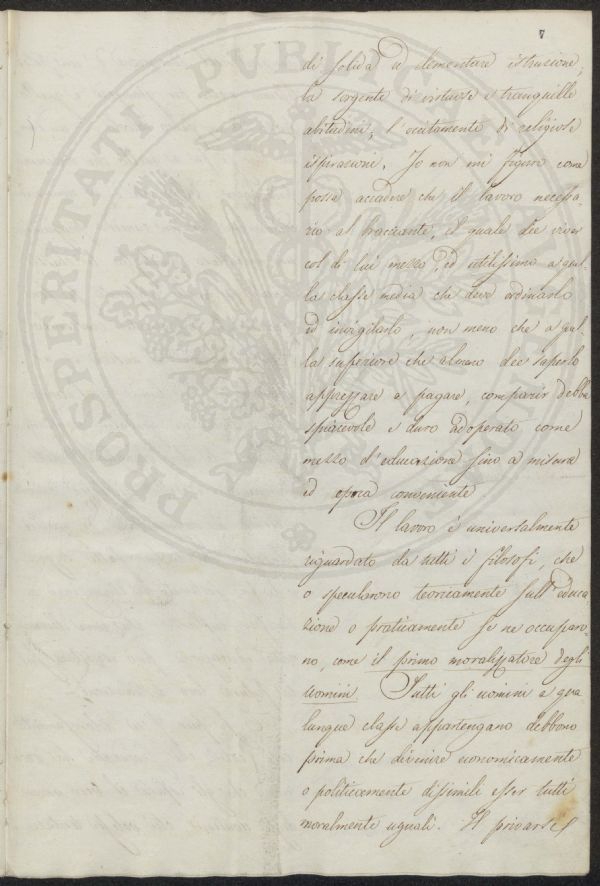 7
di solida ed elementare istruzione,
la sorgente di virtuose e tranquille
abitudini, l'eccitamento di religiose
ispirazioni. Io non mi figuro come
possa accadere che il lavoro necessa-
rio al bracciante, il quale dee viver
col di lui mezzo, ed utilissimo a quel-
la classe media che deve ordinarlo
ed invigilarlo, non meno che a quel-
la superiore che almeno dee saperlo
apprezzare e pagare, comparir debba
spiacevole e duro adoperato come
mezzo d'educazione sino a misura
ed epoca conveniente
Il lavoro è universalmente
riguardato da tutti i filosofi, che
o specularono teoricamente sull'educa
zione o praticamente se ne occuparo-
no, come il primo moralizzatore degli
uomini. Tutti gli uomini a qua
lunque classe appartengano debbono
prima che divenire economicamente
o politicamente dissimili esser tutti
moralmente uguali. Il privarsi
PROSPERITATI PUBLICAE